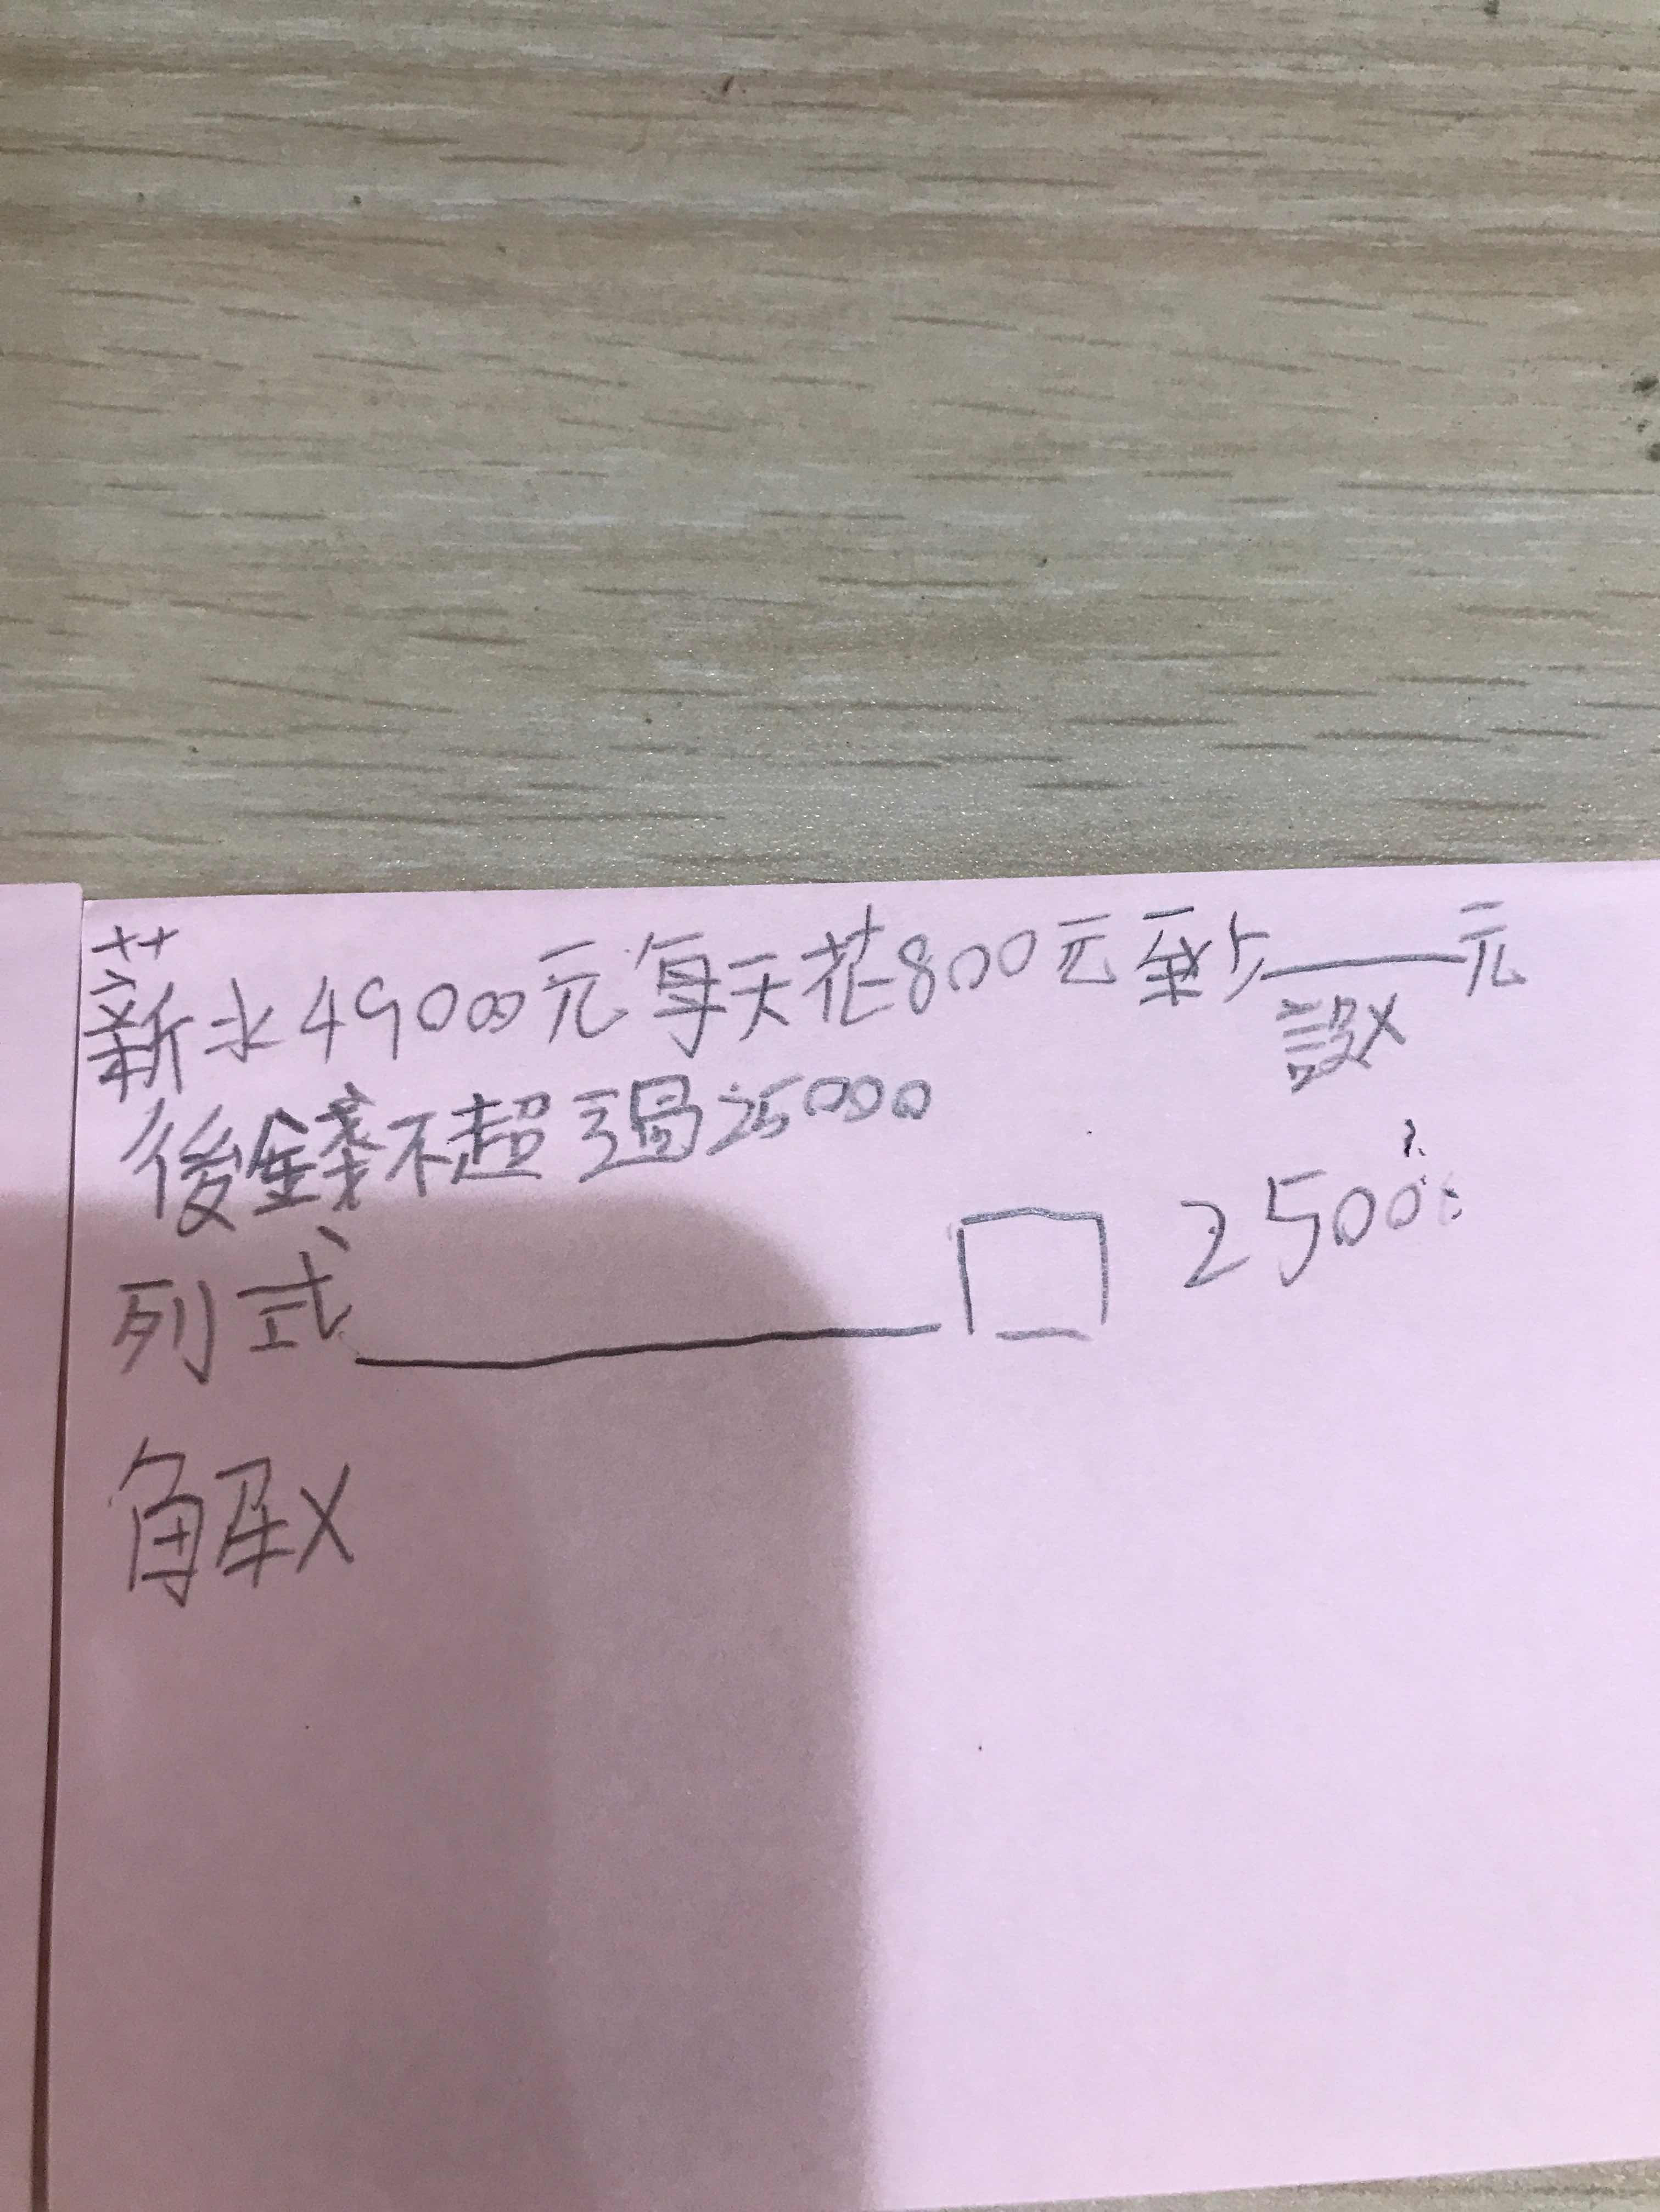 薪水49000元每天花800元至少____元
設X
後錢不超過25000
列式____□ 25000
解X